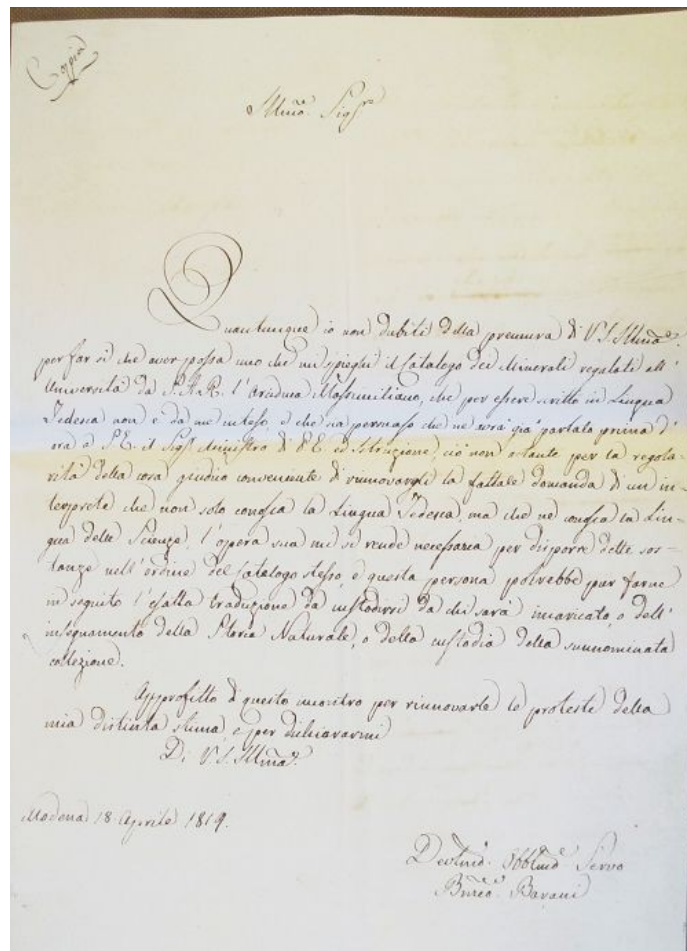 Copia
Illmo. Sigre
Quantunque io non dubiti della premura di V. S. Illma.
per far sì che aver possa uno che mi spieghi il Catalogo dei Minerali regalati all'
Università da S.A.R. l'Arciduca Massimiliano, che per essere scritto in Lingua
Tedesca non è da me inteso, e che sia persuaso che ne avrà già parlato prima d'
ora a S.E. il Sigr. Ministro di P.E. ed Istruzione, ciò non ostante per la regola-
rità della cosa giudico conveniente di rinnovargli la fattale domanda di un in-
terprete che non solo conosca la Lingua Tedesca, ma che ne conosca la Lin-
gua delle Scienze. l'opera sua mi si rende necessaria per disporre dette sos-
tanze nell'ordine del Catalogo stesso, e questa persona potrebbe pur farne
in seguito l'esatta traduzione da custodirsi da chi sarà incaricato o dell'
insegnamento della Storia Naturale, o della custodia della sunnominata
collezione.
Approfitto di questo incontro per rinnovarle le proteste della
mia distinta stima, e per dichiararmi
Di V. S. Illma.
Modena 18 Aprile 1819.
Devmo. Obblmo. Servo
Bmeo. Barani